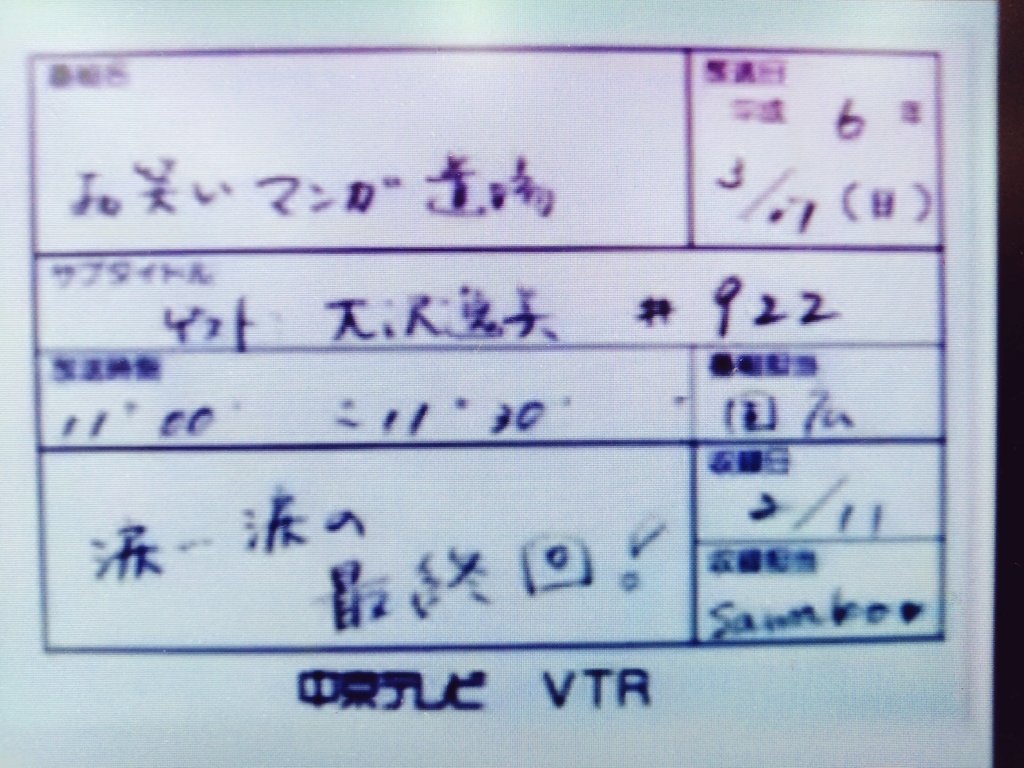 番組名
お笑いマンガ道場
放送日
平成 6 年
3/27(日)
サブタイトル
ゲスト # 922
放送時間
11°00' 〜11°30'
番組担当
国広
涙・涙の
最終回!
収録日
2/11
収録担当
中京テレビ VTR